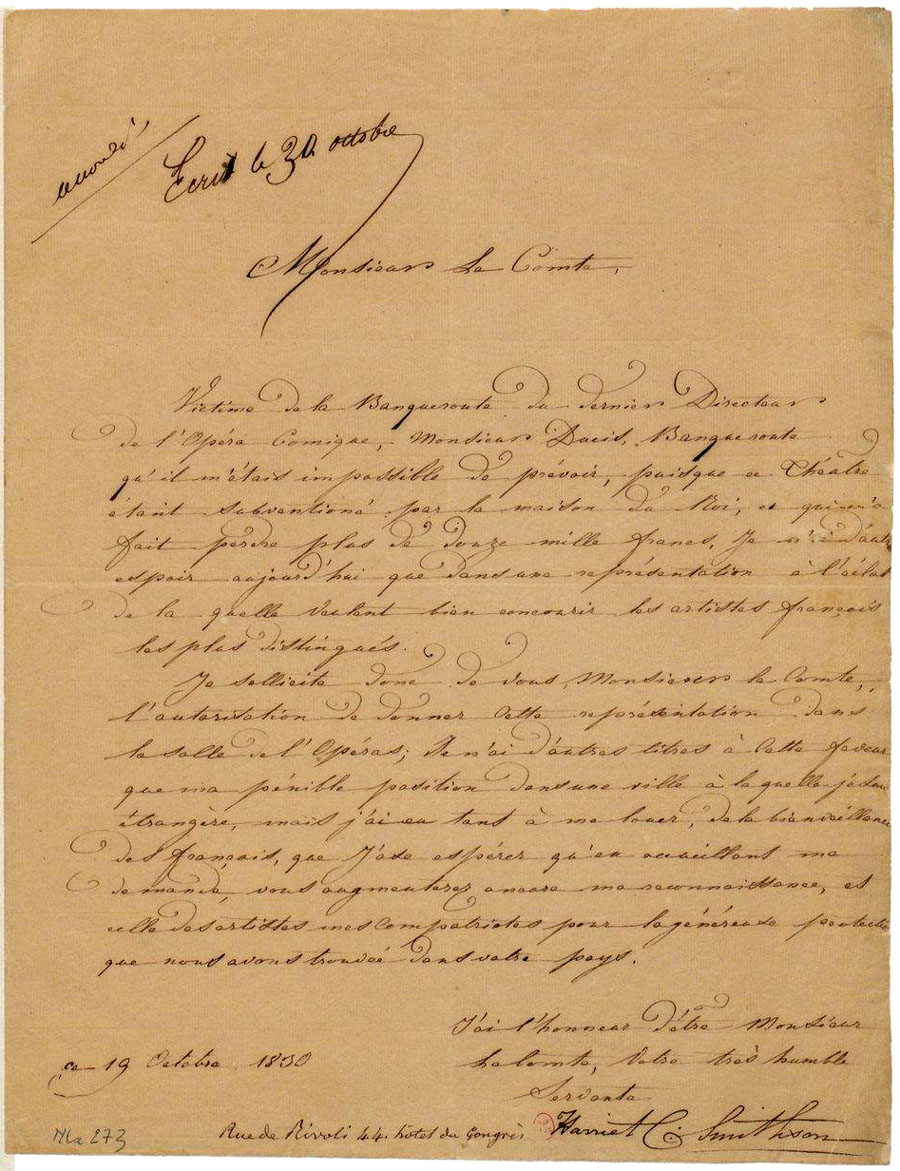 accordé
Ecrit le 30 octobre
Monsieur Le Comte,
Victime de la Banqueroute du dernier Directeur
de l'Opéra Comique, Monsieur Ducis, Banqueroute
qu'il m'étais impossible de prévoir, puisque ce Théatre
étant subventioné par la maison du Roi, et qui m'a
fait perdre plus de douze mille francs, Je n'ai d'autre
espoir aujourd'hui que dans une représentation à l'éclat
de la quelle veulent bien concourir les artistes français
les plus distingués.
Je sollicite donc de vous, Monsieur le Comte,
l'autorisation de donner Cette représentation dans
la salle de l'Opéras; Je n'ai d'autres titres à Cette faveur
que ma pénible position dans une ville à la quelle je suis
étrangère, mais j'ai eu tant à me louer, de la bienveillance
des français, que J'ose espérer qu'en accueillant ma
demande, vous augmenterez encore ma reconnaissance, et
celle des artistes mes Compatriotes pour la généreuse protecti
que nous avons trouvée dans votre pays.
J'ai l'honneur d'être Monsieur
Le Comte, Votre très humble
Servante
ce 19 Octobre 1830
Harriet C. Smithson
Rue de Rivoli 44. hôtel du Congrès
NLa 273